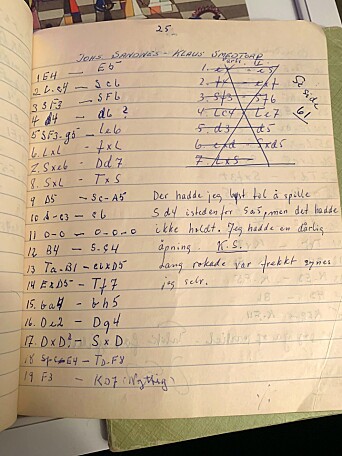 25
JOHS SANDNES - KLAUS SMEDTORP
1 E4 — E5
2 L-c4 — Sc6
3 SF3 — SF6
4 d4 — d6 ?
5 SF3-g5 — Le6
6. LxL — fxL
7. Sxe6 — Dd7
8. SxL — TxS
9 D5 — Sc-A5
10 A-c3 — c6
11 0-0 — 0-0-0
12 B4 — S-c4
13 Ta-B1 — c6xD5
14 ExD5 — Tf7
15. ba4 — bh5
16. De2 — Dg4
17. DxD — SxD
18 E4 — TD-F8
19 F3 — KD7 (Nyttig)
2. f4 — exf
3. Sf3 Sf6
4 Lc4 Le7
5. d3 d5
6 exd Sxd5
7. LxS
Se side 61
Der hadde jeg lyst til å spille
Sd4 istedenfor Sa5, men det hadde
ikke holdt. Jeg hadde en dårlig
åpning. K.S.
Lang rokade var frekkt synes
jeg selv.